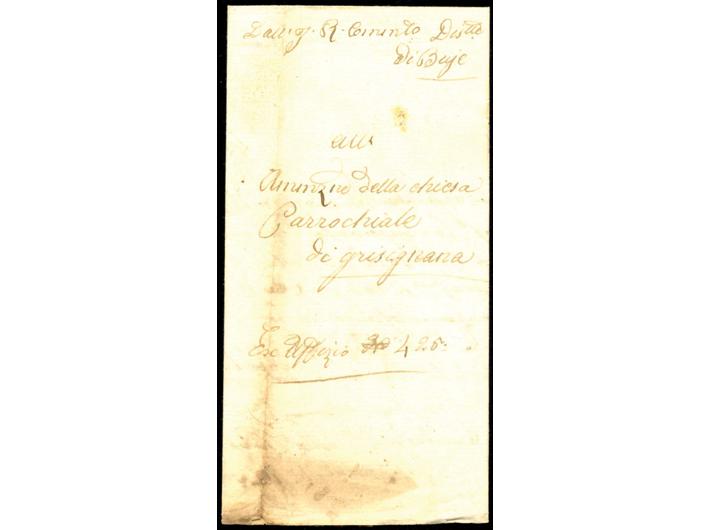 Dall' I. R. Commto Distle
di Buje
All'
Ammzne della chiesa
Parrochiale
di grisignana
Ex Uffizio No 425